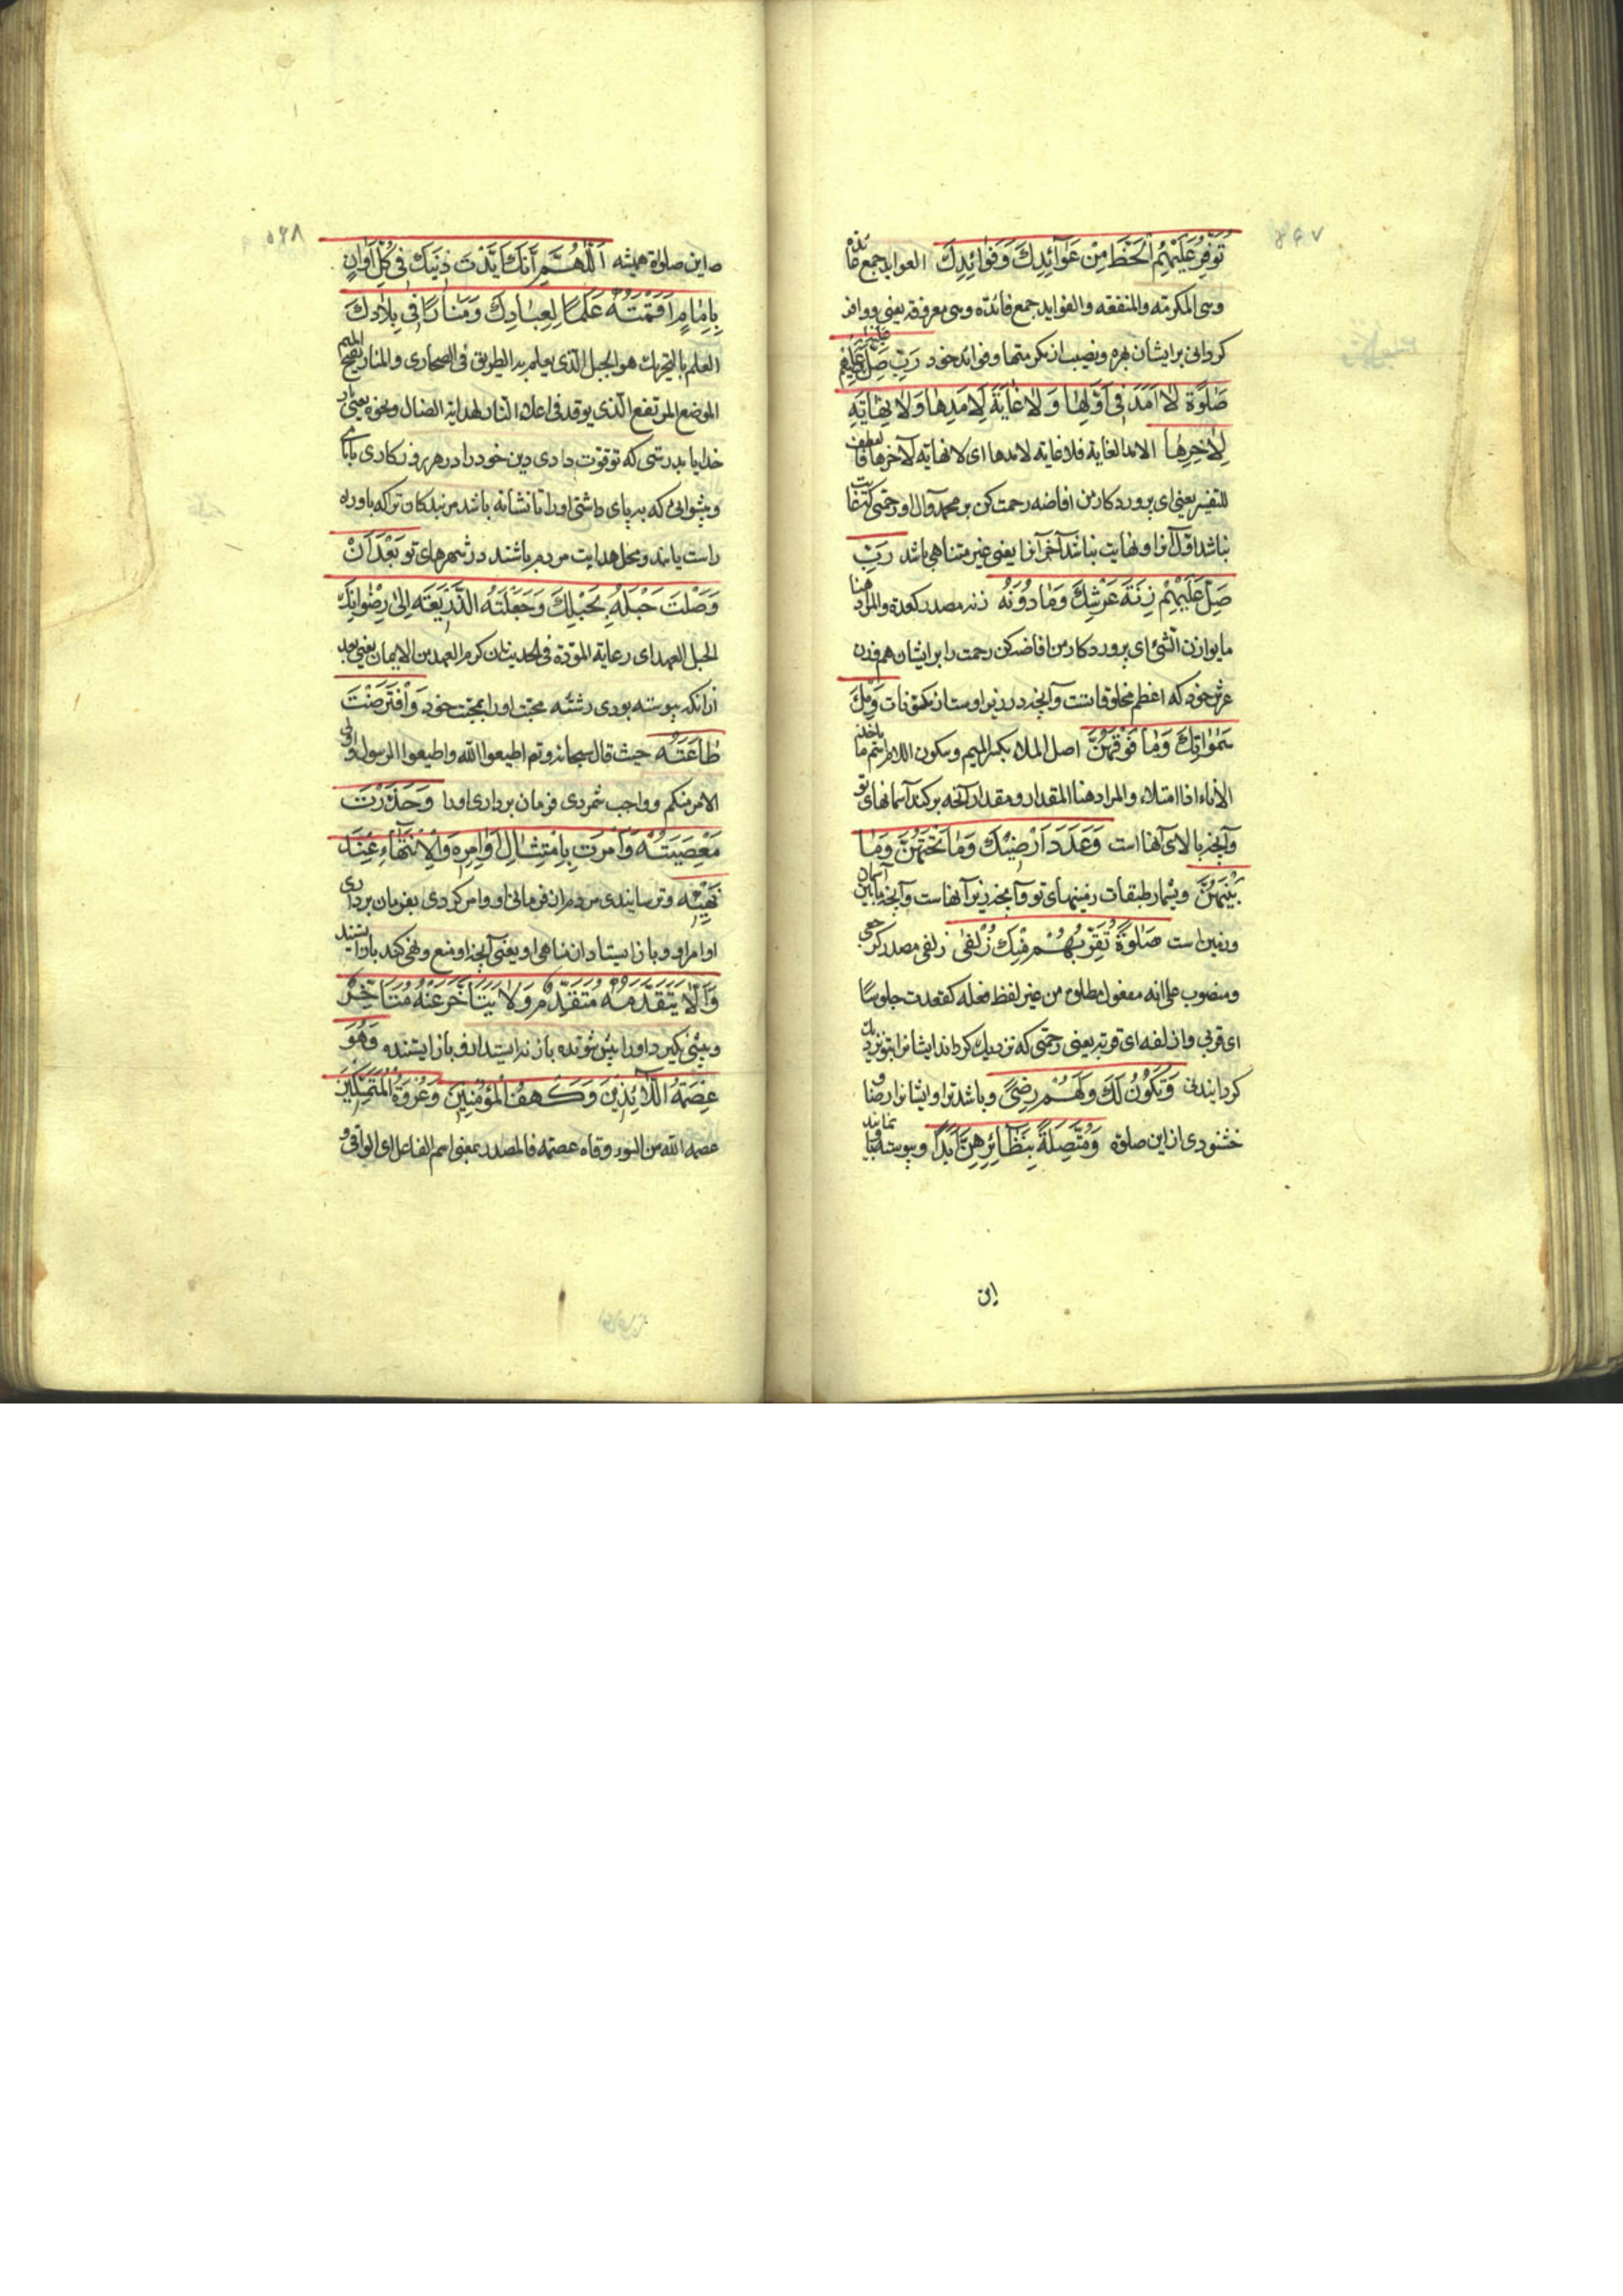 تُوَفِّرُ عَلَيْهِمُ الْحَظَّ مِنْ عَوَآئِدِكَ وَفَوٰائِدِكَ العواید جمع عائده
وهی المکرمته والمنفقه والفواید جمع فائدته وهی معروفة یعنی ووافر
کردانی بر ایشان بهره ونصیب از مکرمتها وفوائد خود رَبِّ صَلِّ عَلَيْهِ وَعَلَيْهِمْ
صَلٰوةً لٰا اَمَدَ فِى اَوَّلِهٰا وَلٰا غٰايَةَ لِاَمَدِهٰا وَلٰا نِهٰايَةَ
لِاٰخِرِهٰا الامد الغایة فلا غایته لامدها ای لا نهایة لآخرها فالعطف
للتفسیر یعنی ای پروردکار من افاضه رحمت کن بر محمد وآل او رحمتی که غایت
نباشد اوّل آنرا ونهایت نباشد آخر آنرا یعنی غیر متناهی باشد رَبِّ
صَلِّ عَلَيْهِمْ زِنَةَ عَرْشِكَ وَمٰا دُونَهُ زنه مصدر کعدة والمراد هنا
مایوازن الشئ ای پروردکار من افاضه کن رحمت را بر ایشان هم وزن
عرش خود که اعظم مخلوقاتست وآنچه در زیر اوست از مکنونات وَمِلْءَ
سَمٰوٰاتِكَ وَمٰا فَوْقَهُنَّ اصل الملاء بکسر المیم وسکون اللام اسم ما یاخذه
الأناء اذا امتلاء والمراد هنا المقدار ومقدار آنچه پر کند آسمانهای تو
وآنچه بالای آنها است وَعَدَدَ اَرْضِيكَ وَمٰا تَحْتَهُنَّ وَمٰا
بَيْنَهُنَّ وبشمار طبقات زمینهای تو وآنچه در زیر آنهاست وآنچه مابین آسمان
وزمین است صَلٰوةً تُقَرِّبُهُمْ مِنْكَ زُلْفٰى زلفی مصدر کرجعی
ومنصوب علی انه مفعول مطلق من غیر لفظ فعله کقعدت جلوسًا
ای قربی وازلفه ای قربه یعنی رحمتی که نزدیک کرداند ایشانرا بتو نزدیک
کردانیدنی وَتَكُونُ لَكَ وَلَهُمْ رِضًى وباشد ترا وایشانرا رضا و
خشنودی از این صلوة وَمُتَّصِلَةً بِنَظٰائِرِهِنَّ اَبَدًا وپیوسته با نمانند
این
ه این صلوة همیشه اَللّٰهُمَّ اِنَّكَ اَيَّدْتَ دِينَكَ فِى كُلِّ اَوٰانٍ
بِاِمٰامٍ اَقَمْتَهُ عَلَمًا لِعِبٰادِكَ وَمَنٰارًا فِى بِلٰادِكَ
العلم بالتحریک هو الجبل الّذی یعلم به الطریق فی الصحاری والمنار بفتح المیم
الموضع المرتفع الّذی یوقد فی اعلاه النار لهدایة الضال ونحوه یعنی بار
خدایا بدرستی که تو قوّت دادی دین خود را در هر روزکاری بامامی
وپیشوایی که بر پای داشتی او را تا نشانه باشد مر بندکان ترا که باو راه
راست یابند ومحل هدایت مردم باشند در شهرهای تو بَعْدَ اَنْ
وَصَلْتَ حَبْلَهُ بِحَبْلِكَ وَجَعَلْتَهُ الذَّرِيعَةَ اِلٰى رِضْوٰانِكَ
الحبل العهد ای رعایة المودّة فی الحدیث ان کرم العهد من الایمان یعنی بعد
از آنکه پیوسته بودی رشته محبّت اورا بمحبّت خود وَافْتَرَضْتَ
طٰاعَتَهُ حیث قال سبحانه وتم اطیعوا الله واطیعوا الرسول واولی
الامر منکم وواجب شمردی فرمان برداری اورا وَحَذَّرْتَ
مَعْصِيَتَهُ وَاَمَرْتَ بِامْتِثٰالِ اَوٰامِرِهِ وَالْاِنْتِهٰآءِ عِنْدَ
نَهْيِهِ وترسانیدی مردم از نافرمانی او وامر کردی بفرمان برداری
اوامر او وباز ایستادن از مناهی او یعنی آنچه او منع ونهی کند باز ایستند
وَاَلّٰا يَتَقَدَّمَهُ مُتَقَدِّمٌ وَلٰا يَتَاَخَّرَ عَنْهُ مُتَاَخِّرٌ
وپیشی نکیرد او را پیش شونده باز نه ایستد از او باز ایستنده وَهُوَ
عِصْمَةُ اللّٰائِذِينَ وَكَهْفُ الْمُؤْمِنِينَ وَعُرْوَةُ الْمُتَمَسِّكِينَ
عصمه الله من السوء وقاه عصمته فالمصدر بمعنی اسم الفاعل ای الواقی و